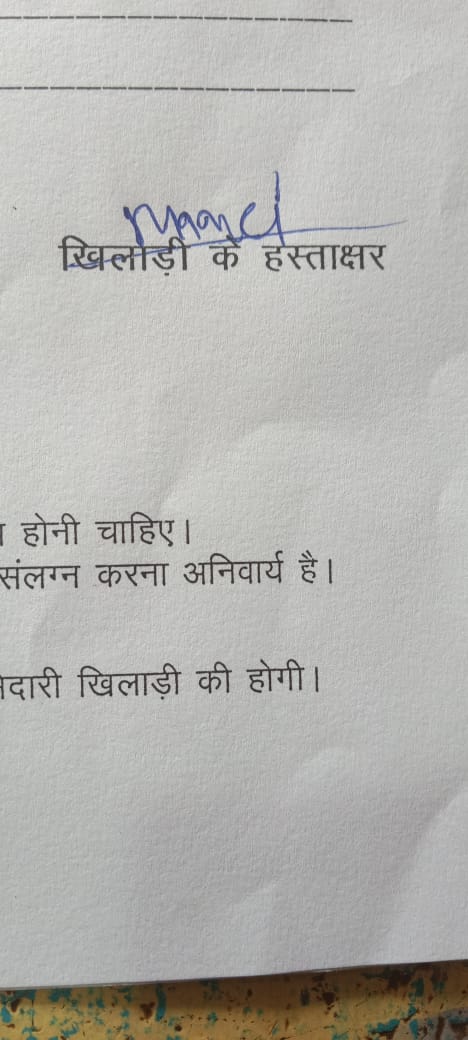 खिलाड़ी के हस्ताक्षर
होनी चाहिए।
संलग्न करना अनिवार्य है।
खिलाड़ी की होगी।